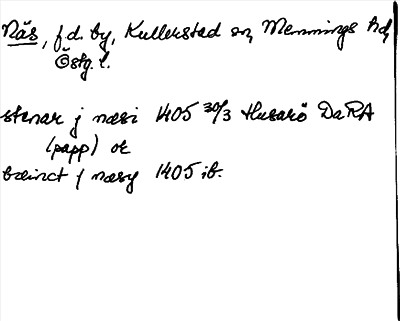 Näs, f.d. by, Kullerstad sn, Memmings hd,
Östg.l.
stenar j næsi 1405 30/3 Husarö DaRA
(papp) or
bæinct j næsy 1405 ib.